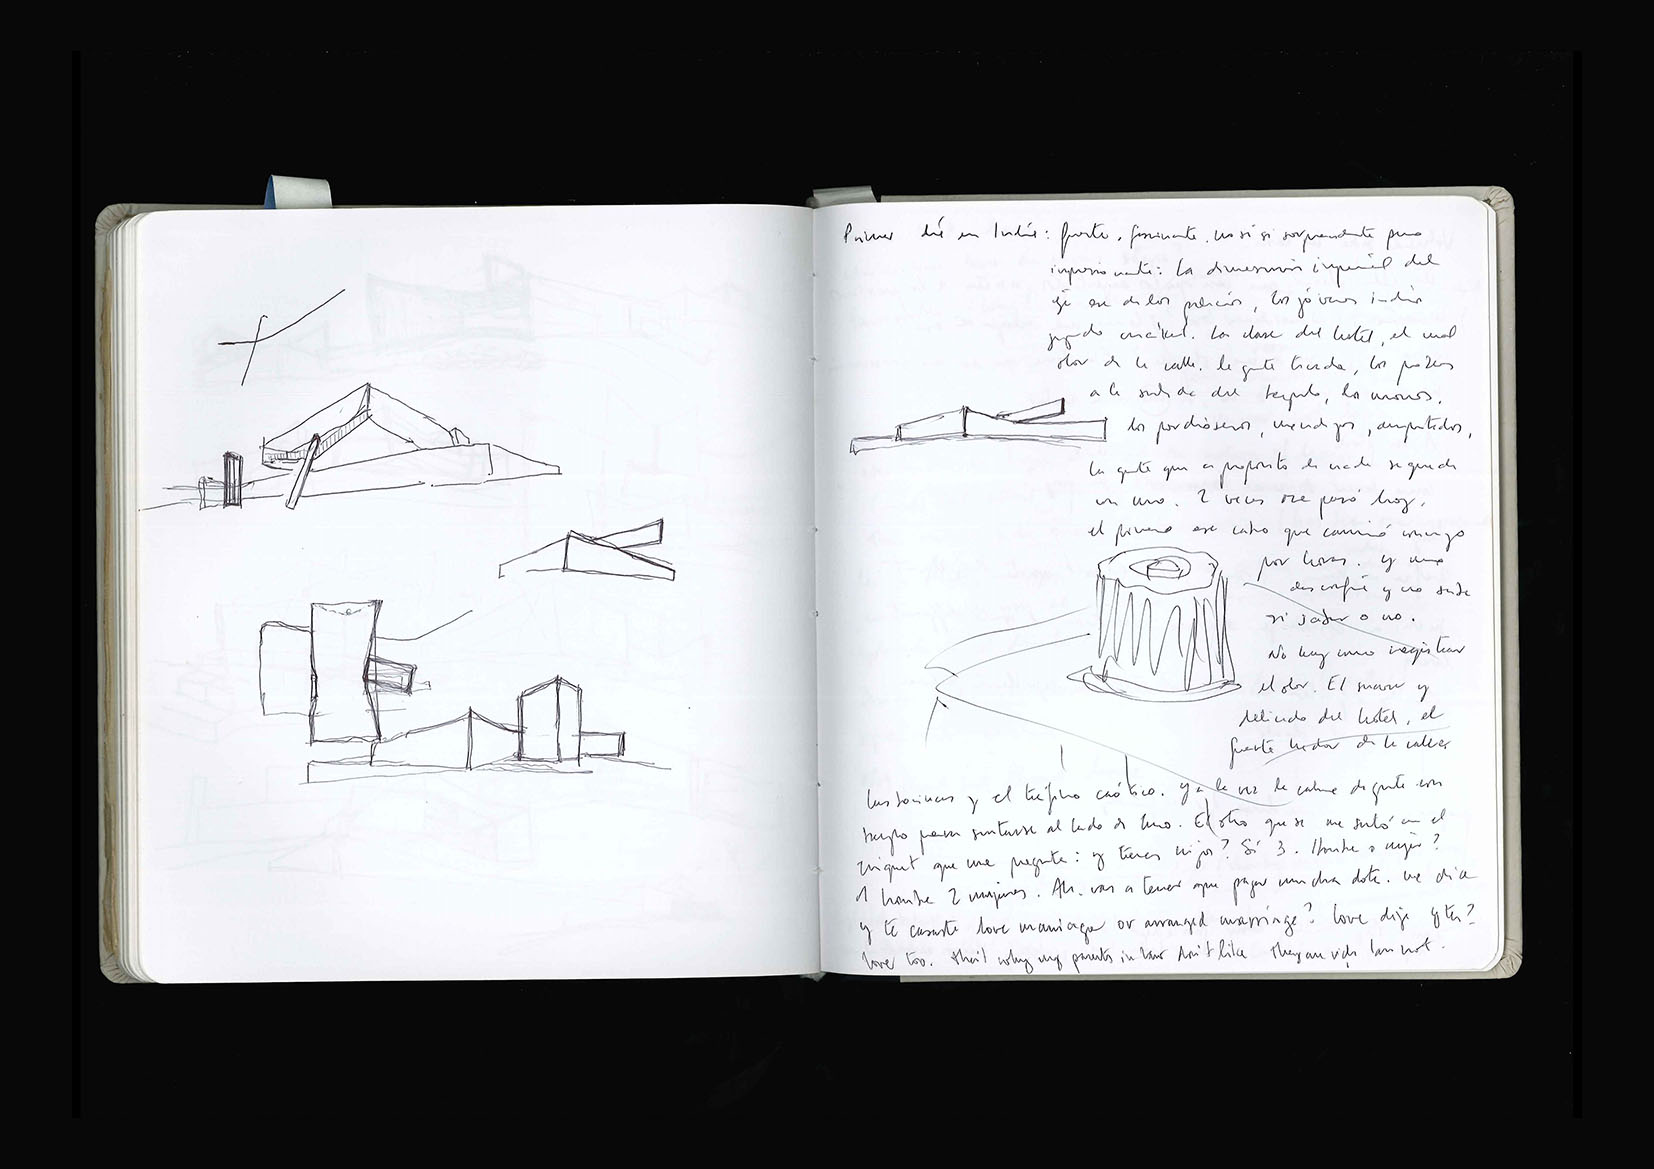 Primer día en India: fuerte, fascinante. no sé si sorprendente pero
impresionante: la dimensión imperial del
eje ese de los palacios, los jóvenes indios
jugando cricket. La clase del hotel, el mal
olor de la calle. la gente tirada, los
a la subida del templo, los monos.
los pordioseros, mendigos, amputados,
la gente que a propósito de nada se queda
en uno. 2 veces me pasó hoy,
el primero ese cabro que caminó conmigo
por horas. y uno
desconfía y no sabe
si joder o no.
No hay como registrar
el olor. El suave y
delicado del hotel, el
fuerte hedor de la calle
las bocinas y el tráfico caótico. y a la vez la calma de gente con
tiempo para sentarse al lado de uno. El otro que se me subió en el
que me pregunta: y tienes hijos? Sí 3. Hombre o mujer?
1 hombre 2 mujeres. Ah. vas a tener que pagar mucha dote. me dice
y te casaste love marriage or arranged marriage? love dije y tu?
love too. that why my parents in law don't like They are I am not.